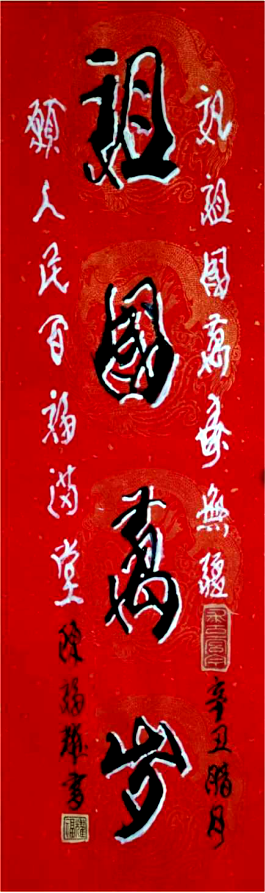 祝祖國萬壽無疆
辛丑腊月
祖國萬歲
願人民百福满堂
陳福雄書